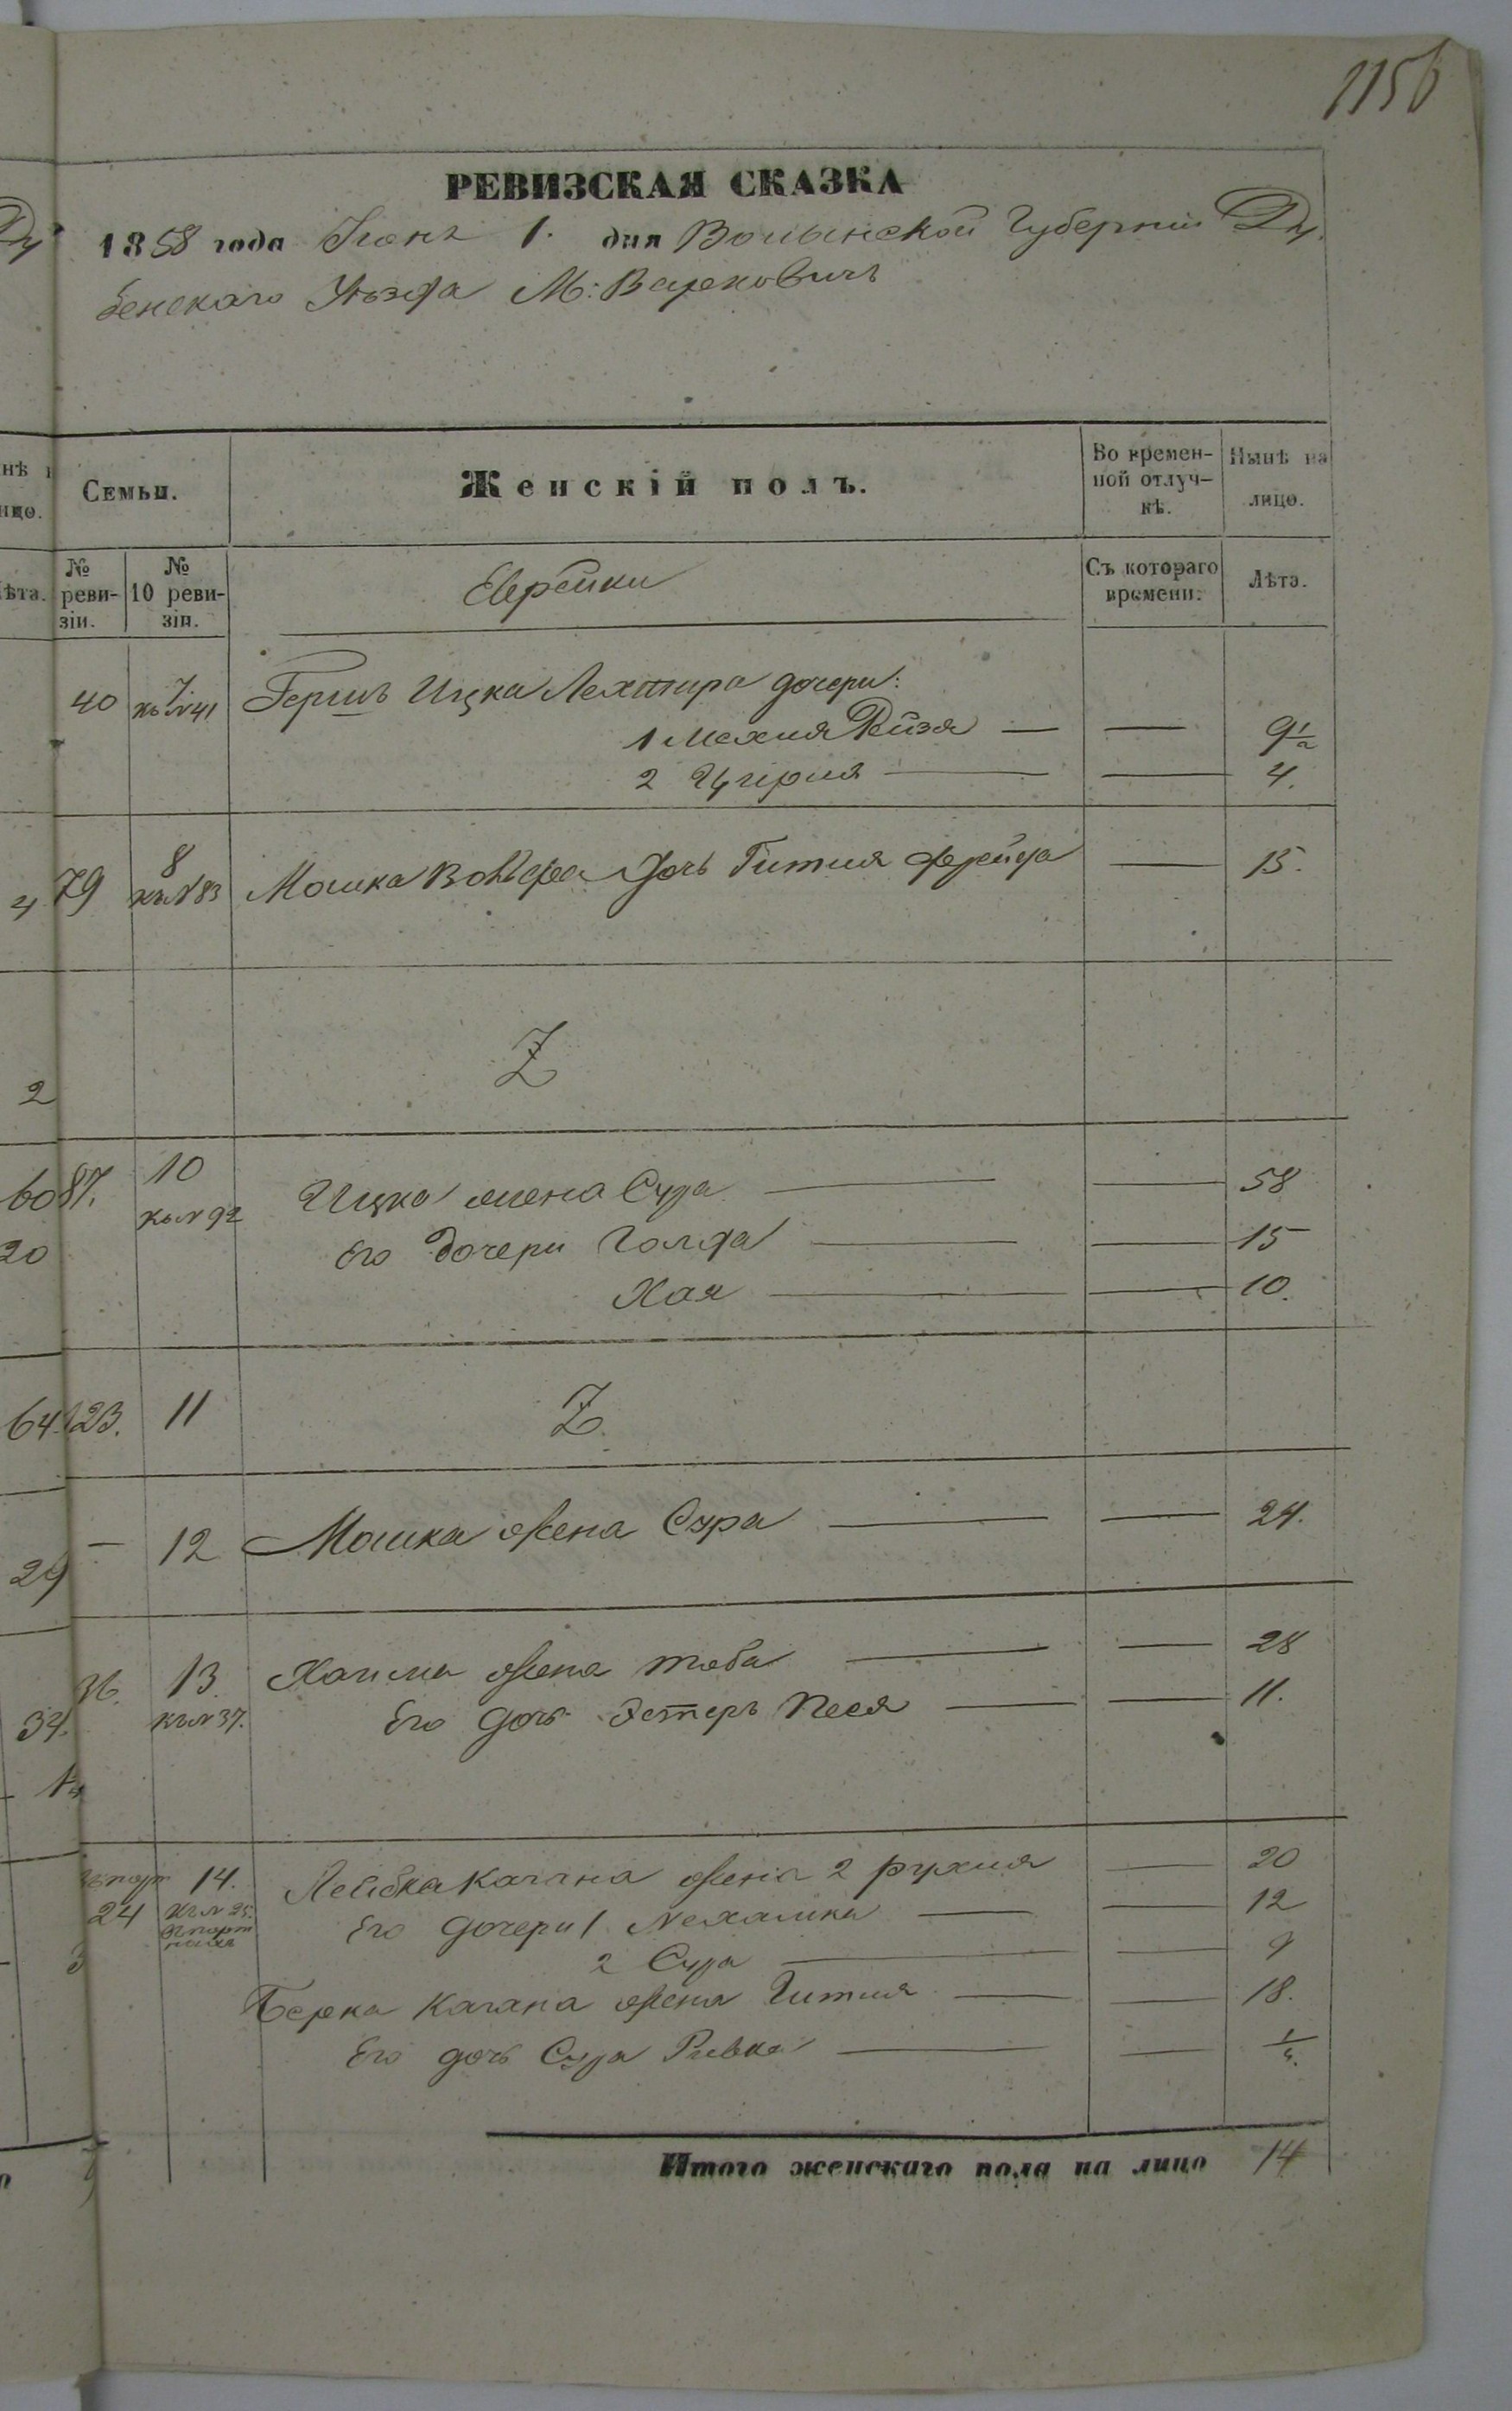 1156
РЕВИЗСКАЯ СКАЗКА
1858 года Іюня 1. дня Волынской Губерніи Ду-
бенскаго Уѣзда М: Варковичъ
Семьи.
Женскій полъ.
Во времен-
ной отлуч-
кѣ.
Нынѣ на
лицо.
№
реви-
зіи.
№
10 реви-
зіи.
Еврейки
Съ котораго
времени.
Лѣта.
40 7 къ №41 Гершъ Ицка дочери:
1 Рейзя — — 9½
2 — — 4.
79 8 къ №83 Мошка Вольфа дочь Гитля Фрейда — 15.
Z
87. 10 къ № 92 Ицка жена Сура — — 58
Его дочери Голда — — 15
Хая — — 10.
123. 11 Z.
— 12 Мошка жена Сура — — 24.
36. 13. къ № 37. Хаима жена Тоба — — 28
Его дочь Эстеръ Песя — — 11.
24 14. къ № 25. Лейбка Кагана жена 2 Рухля — 20
Его дочери 1. Нехамка — — 12
2 Сура — — 9
Берка Кагана жена Гитля — — 18.
Его дочь Сура Ривка — — ¼.
Итого женскаго пола на лицо 14